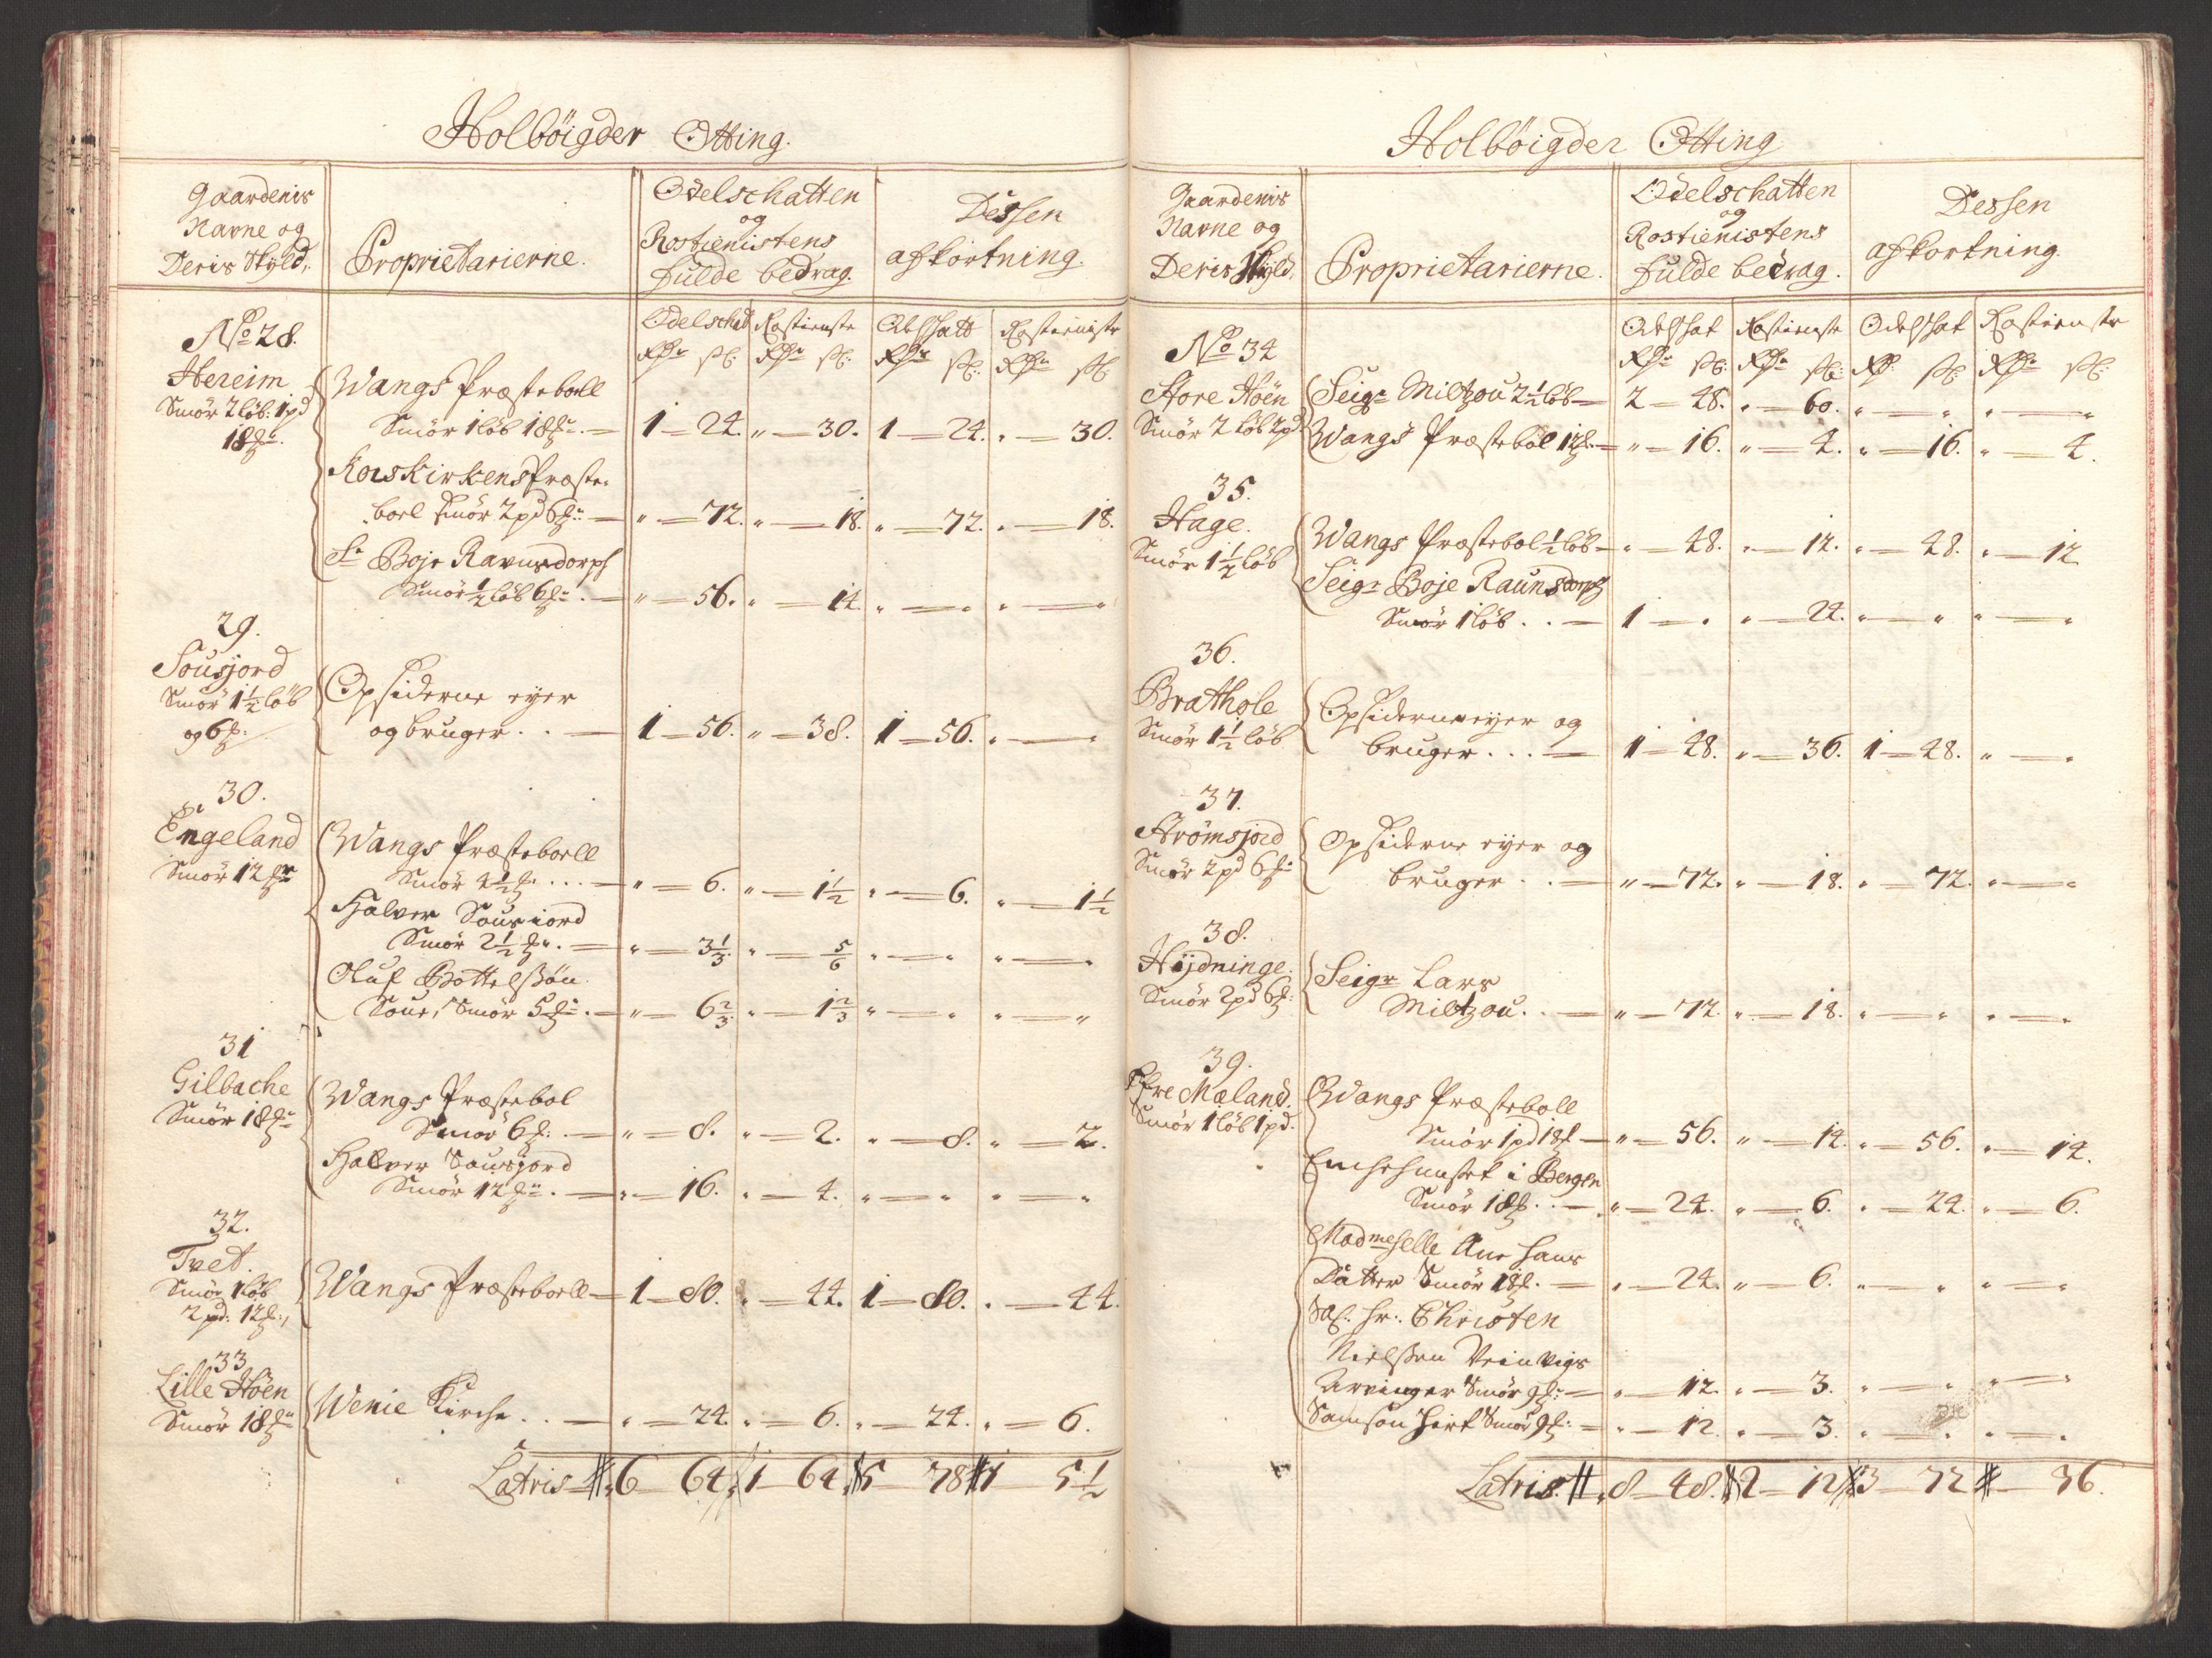 Holbøigder Otting.
Gaardenis Navne og Deris Skyld,
Proprietarierne.
Odelschatten og Rostienistens fulde bedrag.
Dessen afkortning.
Odelschat Rostienste Odelschatt Rostieniste
No 28.
Hereim
Smör 2 löb: 1 pd
18
Wangs Præsteboell
Smör 1 löb 18 — 1 — 24. " — 30. 1 — 24. " — 30.
Korskirkens Præste-
boel Smör 2 pd 6 — " — 72. " — 18. " — 72. " — 18.
Sr Boje Ravnsdorph
Smör 1/2 löb 6 — " — 56. " — 14. " — " " — "
29.
Sousjord
Smör 1 1/2 löb
og 6
Opsiderne eyer
og bruger . . — 1 — 56. " — 38. 1 — 56. " — "
30.
Engeland
Smör 12
Wangs Præsteboell
Smör 4 1/2 . . . — " — 6. " — 1 1/2 " — 6. " — 1 1/2
Halver Sousiord
Smör 2 1/2 . — " — 3 1/3. " — 5/6 " — " " — "
Oluf Bottelsøn
Soue, Smör 5 . — " — 6 2/3. " — 1 2/3 " — " " — "
31
Gilbache
Smör 18
Wangs Præstebol
Smör 6 . — " — 8. " — 2. " — 8. " — 2.
Halver Sousjord
Smör 12 . — " — 16. " — 4. " — " " — "
32.
Tvet.
Smör 1 löb
2 pd: 12
Wangs Præsteboell — 1 — 80. " — 44. 1 — 80. " — 44.
33
Lille Höen
Smör 18
Wenie Kirche . . — " — 24. " — 6. " — 24. " — 6.
Latris 6 64 1 — 64 5 78 1 5 1/2
Holbøigder Otting
Gaardenis Navne og Deris Skyld,
Proprietarierne.
Odelschatten og Rostienistens fulde bedrag.
Dessen afkortning.
Odelschat Rostienste Odelschat Rostienste
No 34
Store Höen
Smör 2 löb 2 pd
Seigr Miltzou 2 1/2 löb — 2 — 48. " — 60. " — " " — "
Wangs Præstebol 12 — " — 16. " — 4. " — 16. " — 4.
35.
Hage.
Smör 1 1/2 löb
Wangs Præstebol 1/2 löb — " — 48. " — 12. " — 48. " — 12
Seigr Boje Raunsdorph
Smör 1 löb . . — 1 — " " — 24. " — " " — "
36.
Brathole
Smör 1 1/2 löb
Opsiderne eyer og
bruger . . . — 1 — 48. " — 36. 1 — 48. " — "
37.
Strömsjord
Smör 2 pd 6
Opsiderne eyer og
bruger . . — " — 72. " — 18. " — 72. " — "
38.
Hydninge.
Smör 2 pd 6
Seigr Lars
Miltzou . . — " — 72. " — 18. " — " " — "
39.
Mæland.
Smör 1 löb 1 pd.
Wangs Præsteboll
Smör 1 pd 18 — " — 56. " — 14. " — 56. " — 14.
Enchehuuset i Bergen
Smör 18 . . — " — 24. " — 6. " — 24. " — 6.
Madmeselle Ane Hans
Datter Smör 18 . — " — 24. " — 6. " — " " — "
Sal. Hr. Christen
Nielssen Weinvigs
Arvinger Smör 9 — " — 12. " — 3. " — " " — "
Samson Hirt Smör 9 — " — 12. " — 3. " — " " — "
Latris 8 — 48. 2 — 12 3 — 72 — 36.